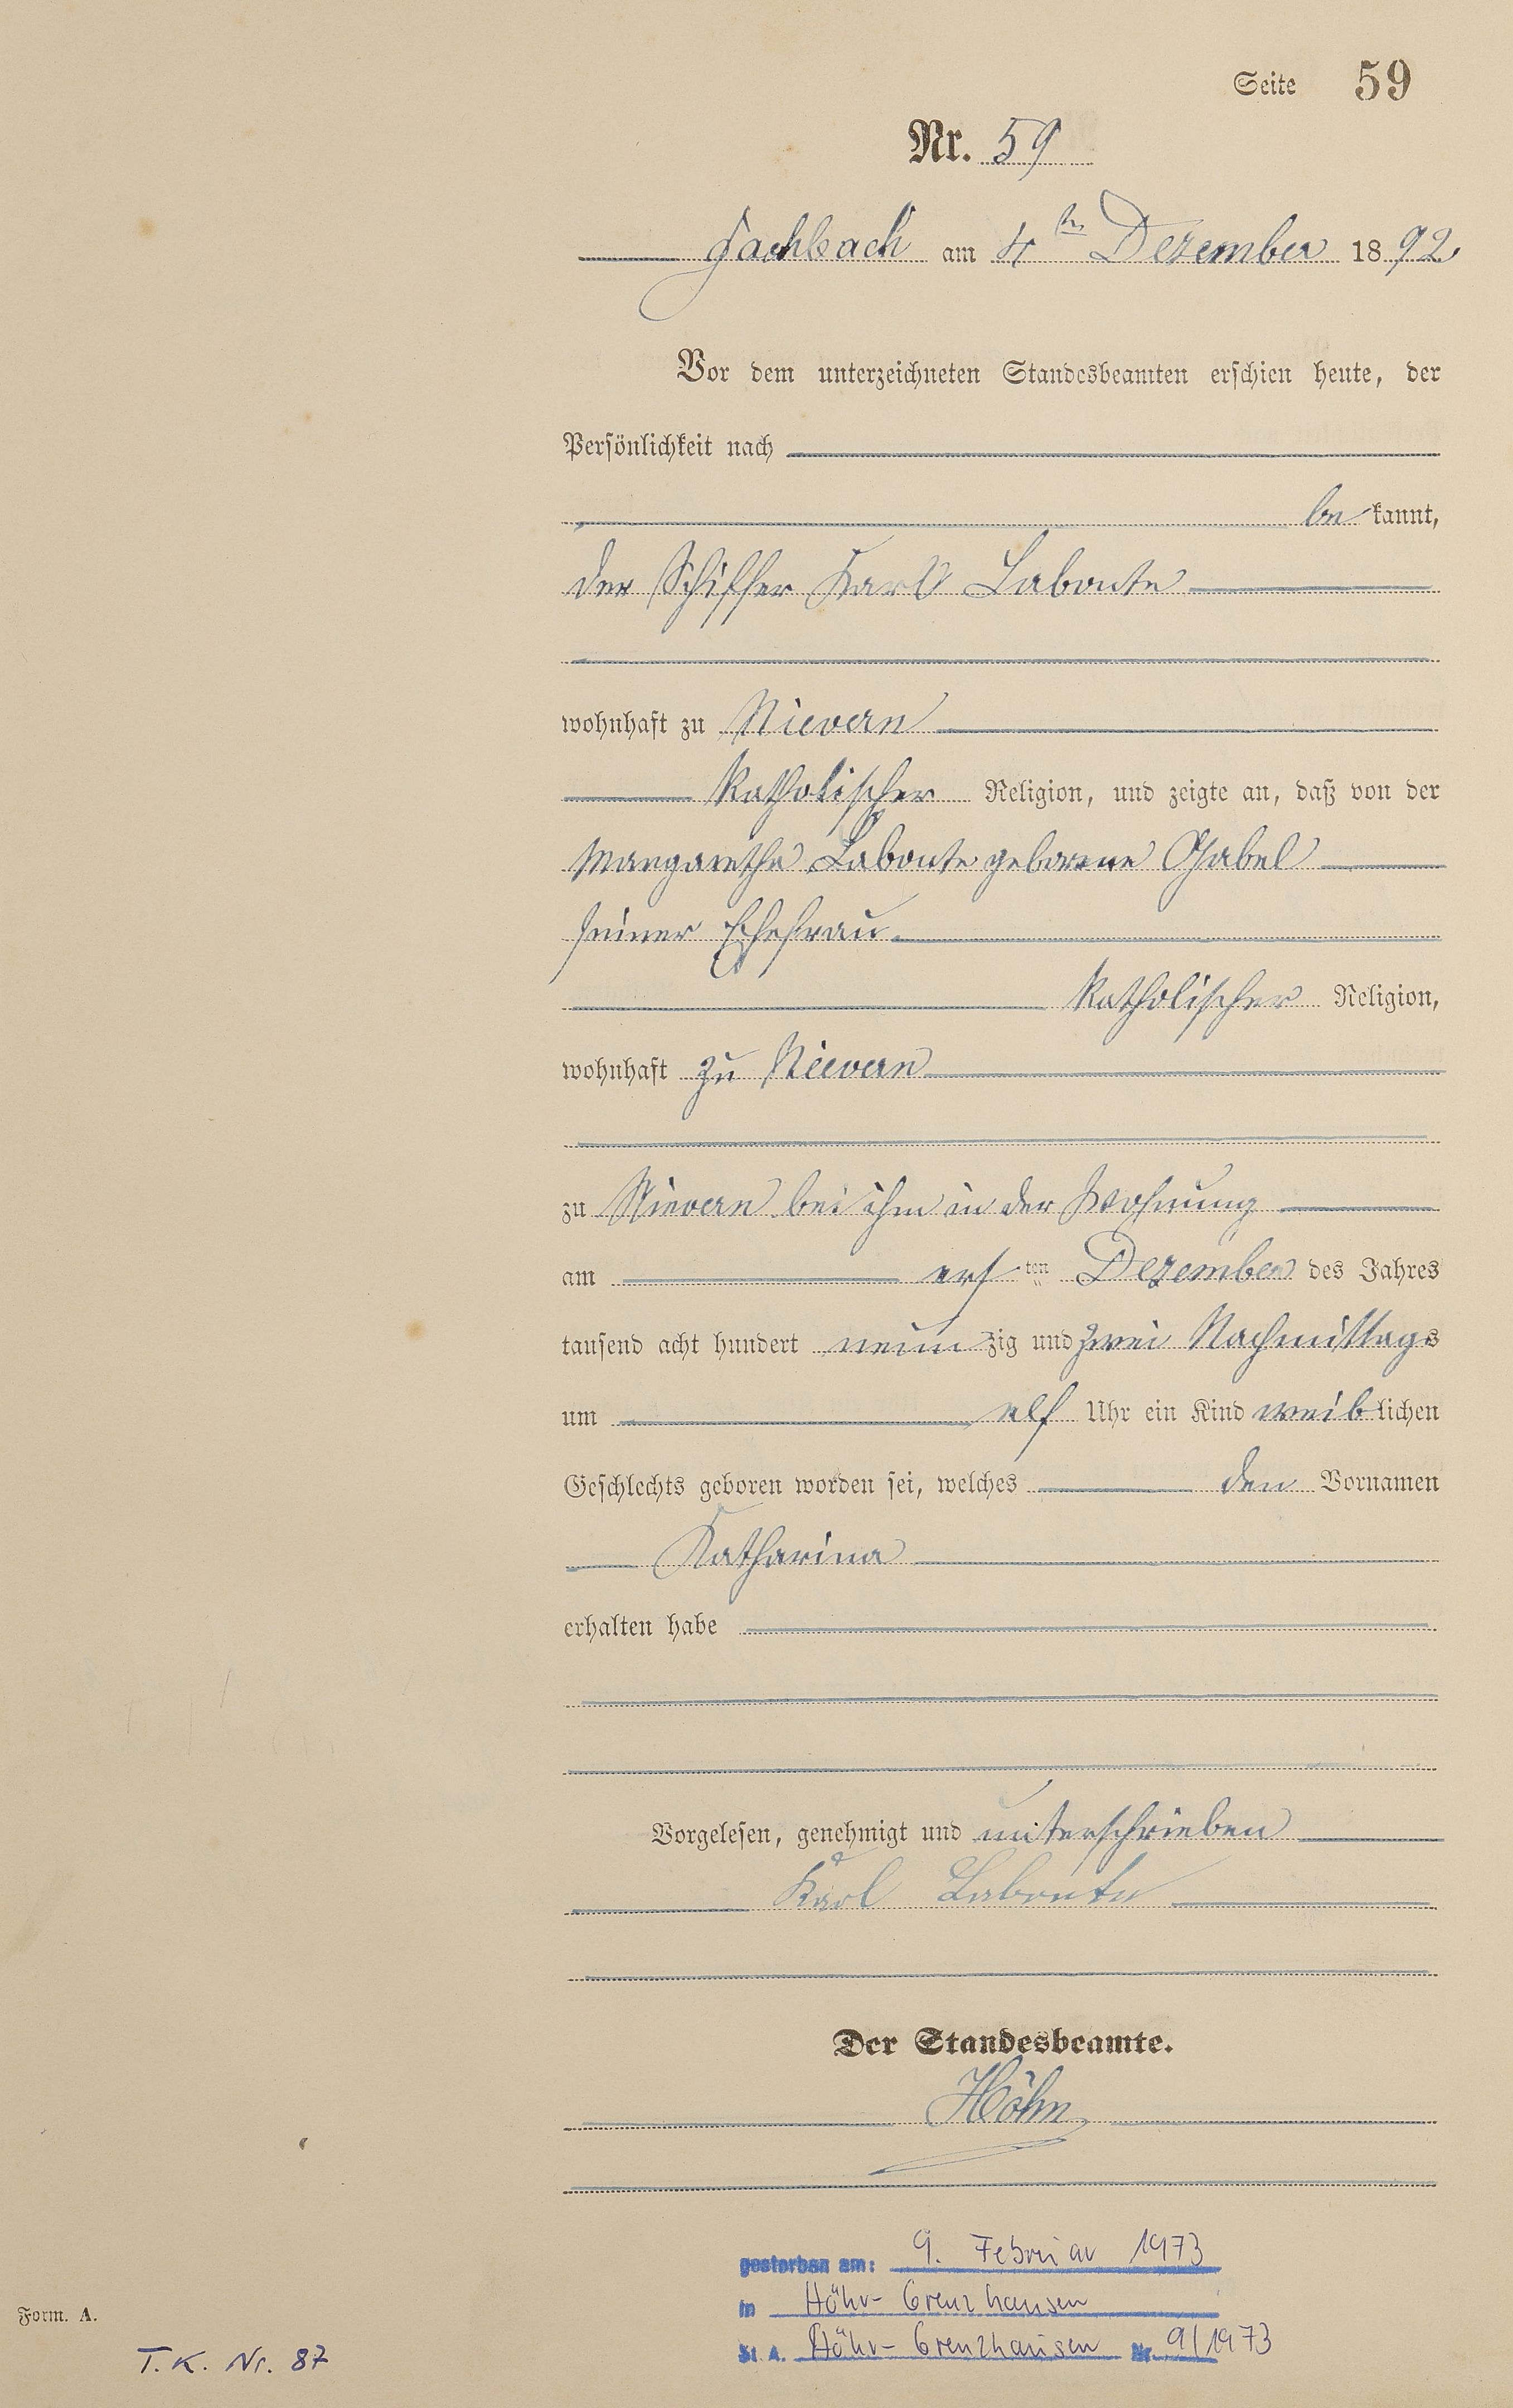 Seite 59
Nr. 59
Fachbach am 4ten Dezember 1892
Vor dem unterzeichneten Standesbeamten erschien heute, der
Persönlichkeit nach
bekannt,
der Schiffer Karl Labonte
wohnhaft zu Nievern
katholischer Religion, und zeigte an, daß von der
Margaretha Labonte geborene Gabel
seiner Ehefrau
katholischer Religion,
wohnhaft zu Nievern
zu Nievern bei ihm in der Wohnung
am ersten Dezember des Jahres
tausend acht hundert neunzig und zwei Nachmittags
um elf Uhr ein Kind weiblichen
Geschlechts geboren worden sei, welches den Vornamen
Katharina
erhalten habe
Vorgelesen, genehmigt und unterschrieben
Karl Labonte
Der Standesbeamte.
Höhn
gestorben am: 9. Februar 1973
in Höhr-Grenzhausen
St. A. Höhr-Grenzhausen Nr. 9/1973
Form. A.
T.K. Nr. 87